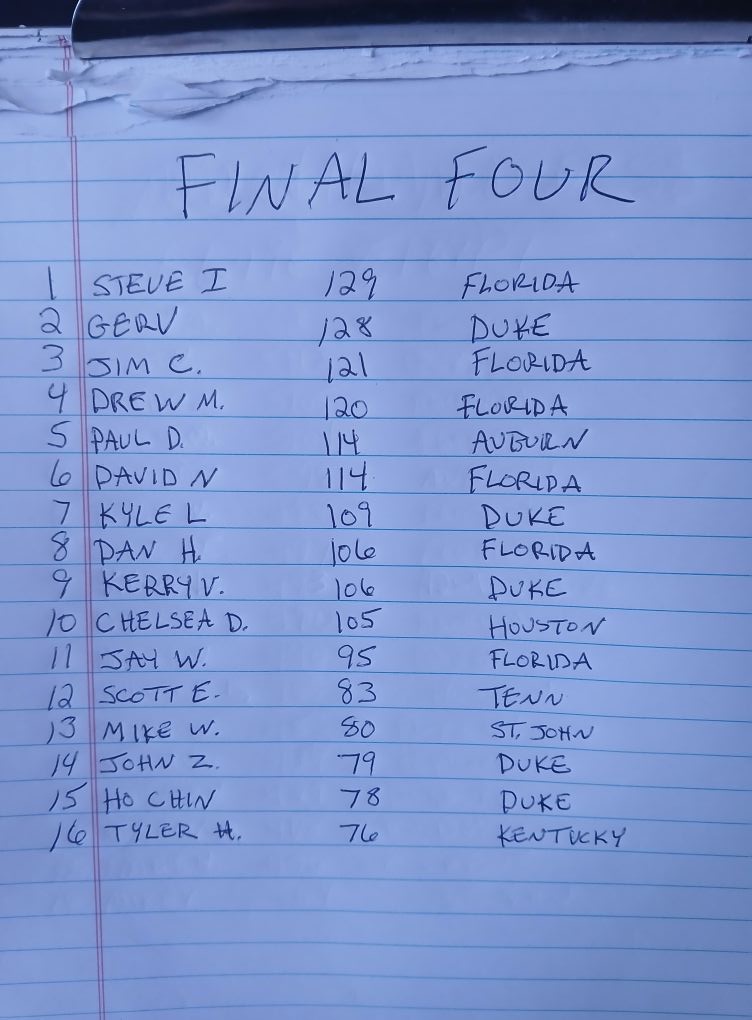 FINAL FOUR
1 STEVE I 129 FLORIDA
2 GERV 128 DUKE
3 JIM C. 121 FLORIDA
4 DREW M. 120 FLORIDA
5 PAUL D. 114 AUBURN
6 DAVID N 114 FLORIDA
7 KYLE L 109 DUKE
8 DAN H. 106 FLORIDA
9 KERRY V. 106 DUKE
10 CHELSEA D. 105 HOUSTON
11 JAY W. 95 FLORIDA
12 SCOTT E. 83 TENN
13 MIKE W. 80 ST. JOHN
14 JOHN Z. 79 DUKE
15 HO CHIN 78 DUKE
16 TYLER H. 76 KENTUCKY